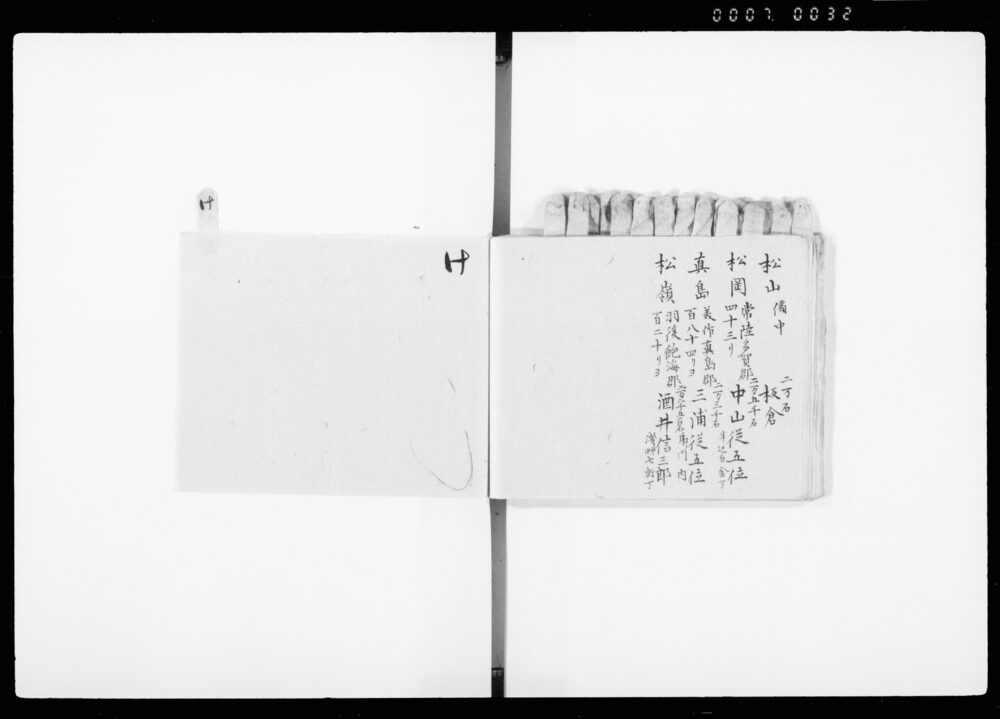 0007 0032
松山 備中 二万石 板倉
松岡 常陸多賀郡 二万五千石 中山従五位
四十三リ 牛込
真島 美作真島郡 二万三千石 三浦従五位
百八十四リヨ 門内
松嶺 羽後飽海郡 二万二千五百石 酒井信三郎
百二十リヨ 浅艸七軒丁
ケ
ケ